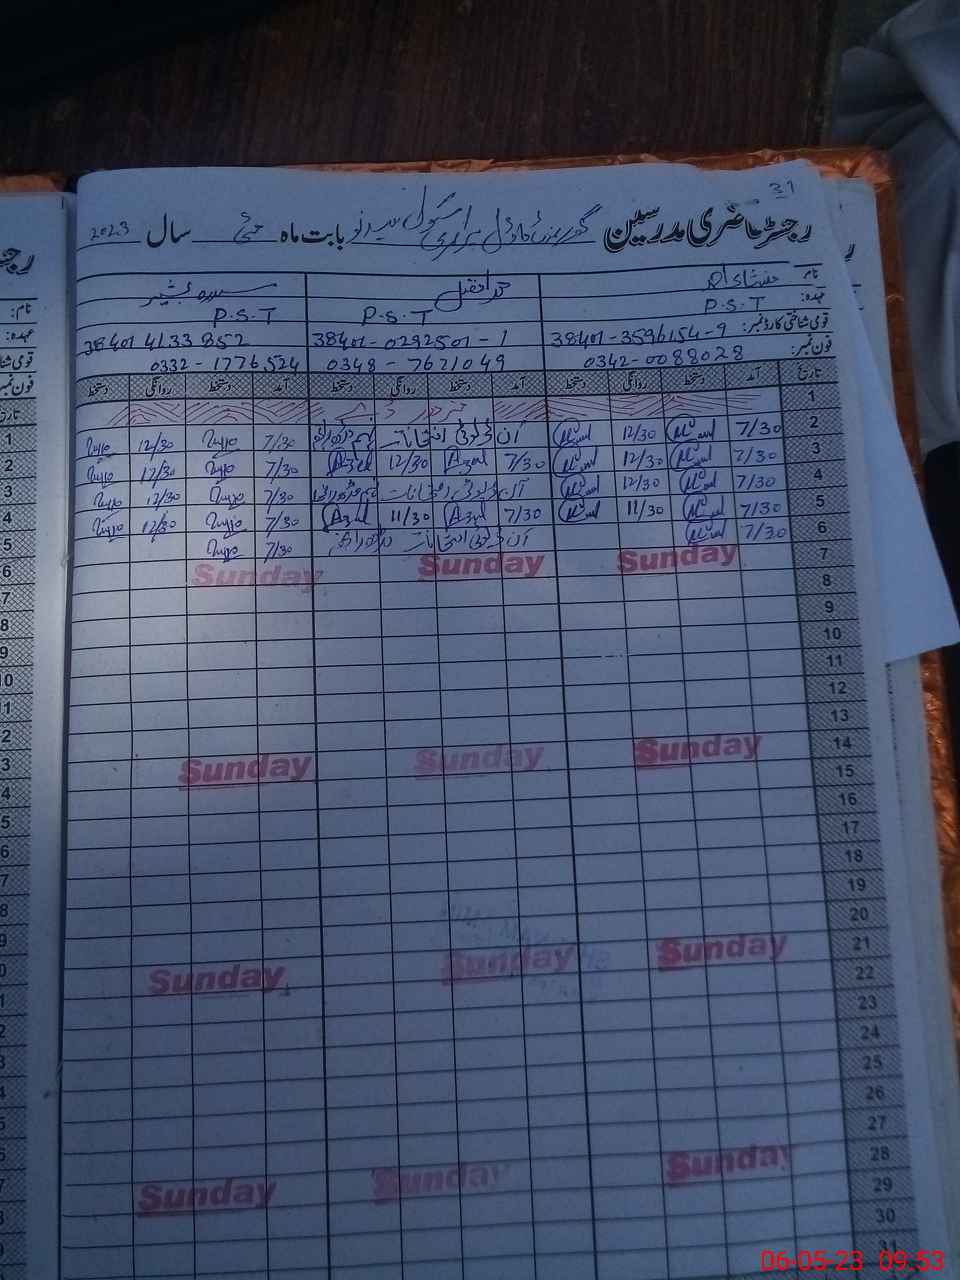 31
رجسٹر حاضری مدرسین گورنمنٹ ماڈل پرائمری سکول بابت ماہ مئی سال 2023
نام:
عہدہ: P.S.T P.S.T P.S.T
قومی شناختی کارڈ نمبر: 38401-3596154-9 38401-0292501-1 38401 4133 852
فون نمبر: 0342-0088028 0348-7671049 0332-1776524
تاریخ آمد دستخط روانگی دستخط آمد دستخط روانگی دستخط آمد دستخط روانگی دستخط
1
2 7/30 12/30 آن ڈیوٹی امتحانات 7/30 12/30
3 7/30 12/30 7/30 Azed 12/30 Azed 7/30 12/30
4 7/30 12/30 آن ڈیوٹی امتحانات 7/30 12/30
5 7/30 11/30 7/30 Azed 11/30 Azed 7/30 12/30
6 7/30 آن ڈیوٹی امتحانات 7/30
7 Sunday Sunday Sunday
8
9
10
11
12
13
14 Sunday Sunday Sunday
15
16
17
18
19
20
21 Sunday Sunday Sunday
22
23
24
25
26
27
28 Sunday Sunday Sunday
29
30
31
06-05-23 09:53